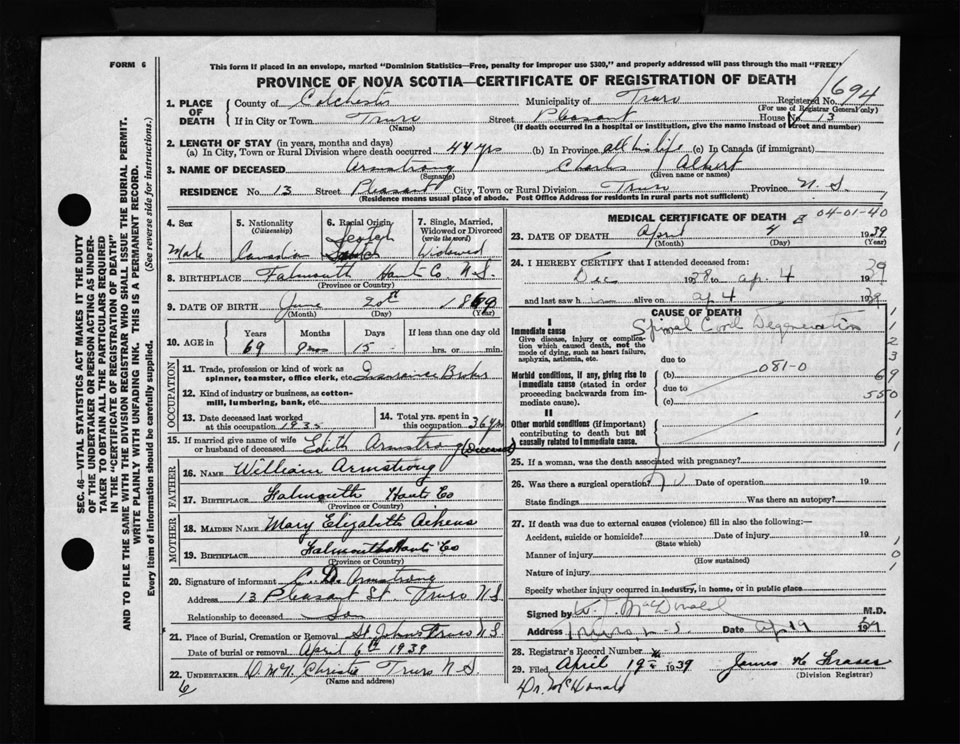 FORM 6
This form if placed in an envelope, marked "Dominion Statistics—Free, penalty for improper use $300," and properly addressed will pass through the mail "FREE"
PROVINCE OF NOVA SCOTIA—CERTIFICATE OF REGISTRATION OF DEATH
1. PLACE OF DEATH County of Colchester Municipality of Truro Registered No. 1694
(For use of Registrar General only)
If in City or Town Truro Street Pleasant House No. 13
(Name) (If death occurred in a hospital or institution, give the name instead of street and number)
2. LENGTH OF STAY (in years, months and days)
(a) In City, Town or Rural Division where death occurred 44 yrs (b) In Province all his life (c) In Canada (if immigrant)
3. NAME OF DECEASED Armstrong Charles Albert
(Surname) (Given name or names)
RESIDENCE No. 13 Street Pleasant City, Town or Rural Division Truro Province N. S.
(Residence means usual place of abode. Post Office Address for residents in rural parts not sufficient)
4. Sex Male
5. Nationality (Citizenship) Canadian
6. Racial Origin Scotch
7. Single, Married, Widowed or Divorced (write the word) Widowed
8. BIRTHPLACE Falmouth Hants Co. N.S.
(Province or Country)
9. DATE OF BIRTH June 20th 1869
(Month) (Day) (Year)
10. AGE in Years 69 Months 9 mos Days 15 If less than one day old hrs. or min.
OCCUPATION
11. Trade, profession or kind of work as spinner, teamster, office clerk, etc. Insurance Broker
12. Kind of industry or business, as cotton-mill, lumbering, bank, etc.
13. Date deceased last worked at this occupation 1935
14. Total yrs. spent in this occupation 36 yrs
15. If married give name of wife or husband of deceased Edith Armstrong (Deceased)
FATHER
16. NAME William Armstrong
17. BIRTHPLACE Falmouth Hants Co
(Province or Country)
MOTHER
18. MAIDEN NAME Mary Elizabeth Aikens
19. BIRTHPLACE Falmouth Hants Co
(Province or Country)
20. Signature of informant Armstrong
Address 13 Pleasant St. Truro N.S.
Relationship to deceased Son
21. Place of Burial, Cremation or Removal St. Johns Truro N.S.
Date of burial or removal April 6th 1939
22. UNDERTAKER Christie Truro N.S.
(Name and address)
6
MEDICAL CERTIFICATE OF DEATH
04-01-40
23. DATE OF DEATH April 4 1939
(Month) (Day) (Year)
24. I HEREBY CERTIFY that I attended deceased from:
Dec 1938 to Ap. 4 1939
and last saw him alive on Ap 4 1939
CAUSE OF DEATH
I
Immediate cause Spinal Cord Degeneration
Give disease, injury or complication which caused death, not the mode of dying, such as heart failure, asphyxia, asthenia, etc.
due to
Morbid conditions, if any, giving rise to immediate cause (stated in order proceeding backwards from immediate cause).
(b) 081-0
due to
(c)
II
Other morbid conditions (if important) contributing to death but not causally related to immediate cause.
1
1
2
3
69
550
1
1
1
25. If a woman, was the death associated with pregnancy?
26. Was there a surgical operation? No Date of operation 19
State findings Was there an autopsy?
27. If death was due to external causes (violence) fill in also the following:—
Accident, suicide or homicide? Date of injury 19
(State which)
Manner of injury
(How sustained)
Nature of injury
1
0
1
Specify whether injury occurred in industry, in home, or in public place
Signed by McDonald M.D.
Address Truro, N.S. Date Ap 19 1939
28. Registrar's Record Number
29. Filed April 19th 1939 James K Fraser
(Division Registrar)
Dr. McDonald
SEC. 46—VITAL STATISTICS ACT MAKES IT THE DUTY
OF THE UNDERTAKER OR PERSON ACTING AS UNDER-
TAKER TO OBTAIN ALL THE PARTICULARS REQUIRED
IN THE "CERTIFICATE OF REGISTRATION OF DEATH"
AND TO FILE THE SAME WITH THE DIVISION REGISTRAR WHO SHALL ISSUE THE BURIAL PERMIT.
WRITE PLAINLY WITH UNFADING INK. THIS IS A PERMANENT RECORD.
Every item of information should be carefully supplied. (See reverse side for instructions.)